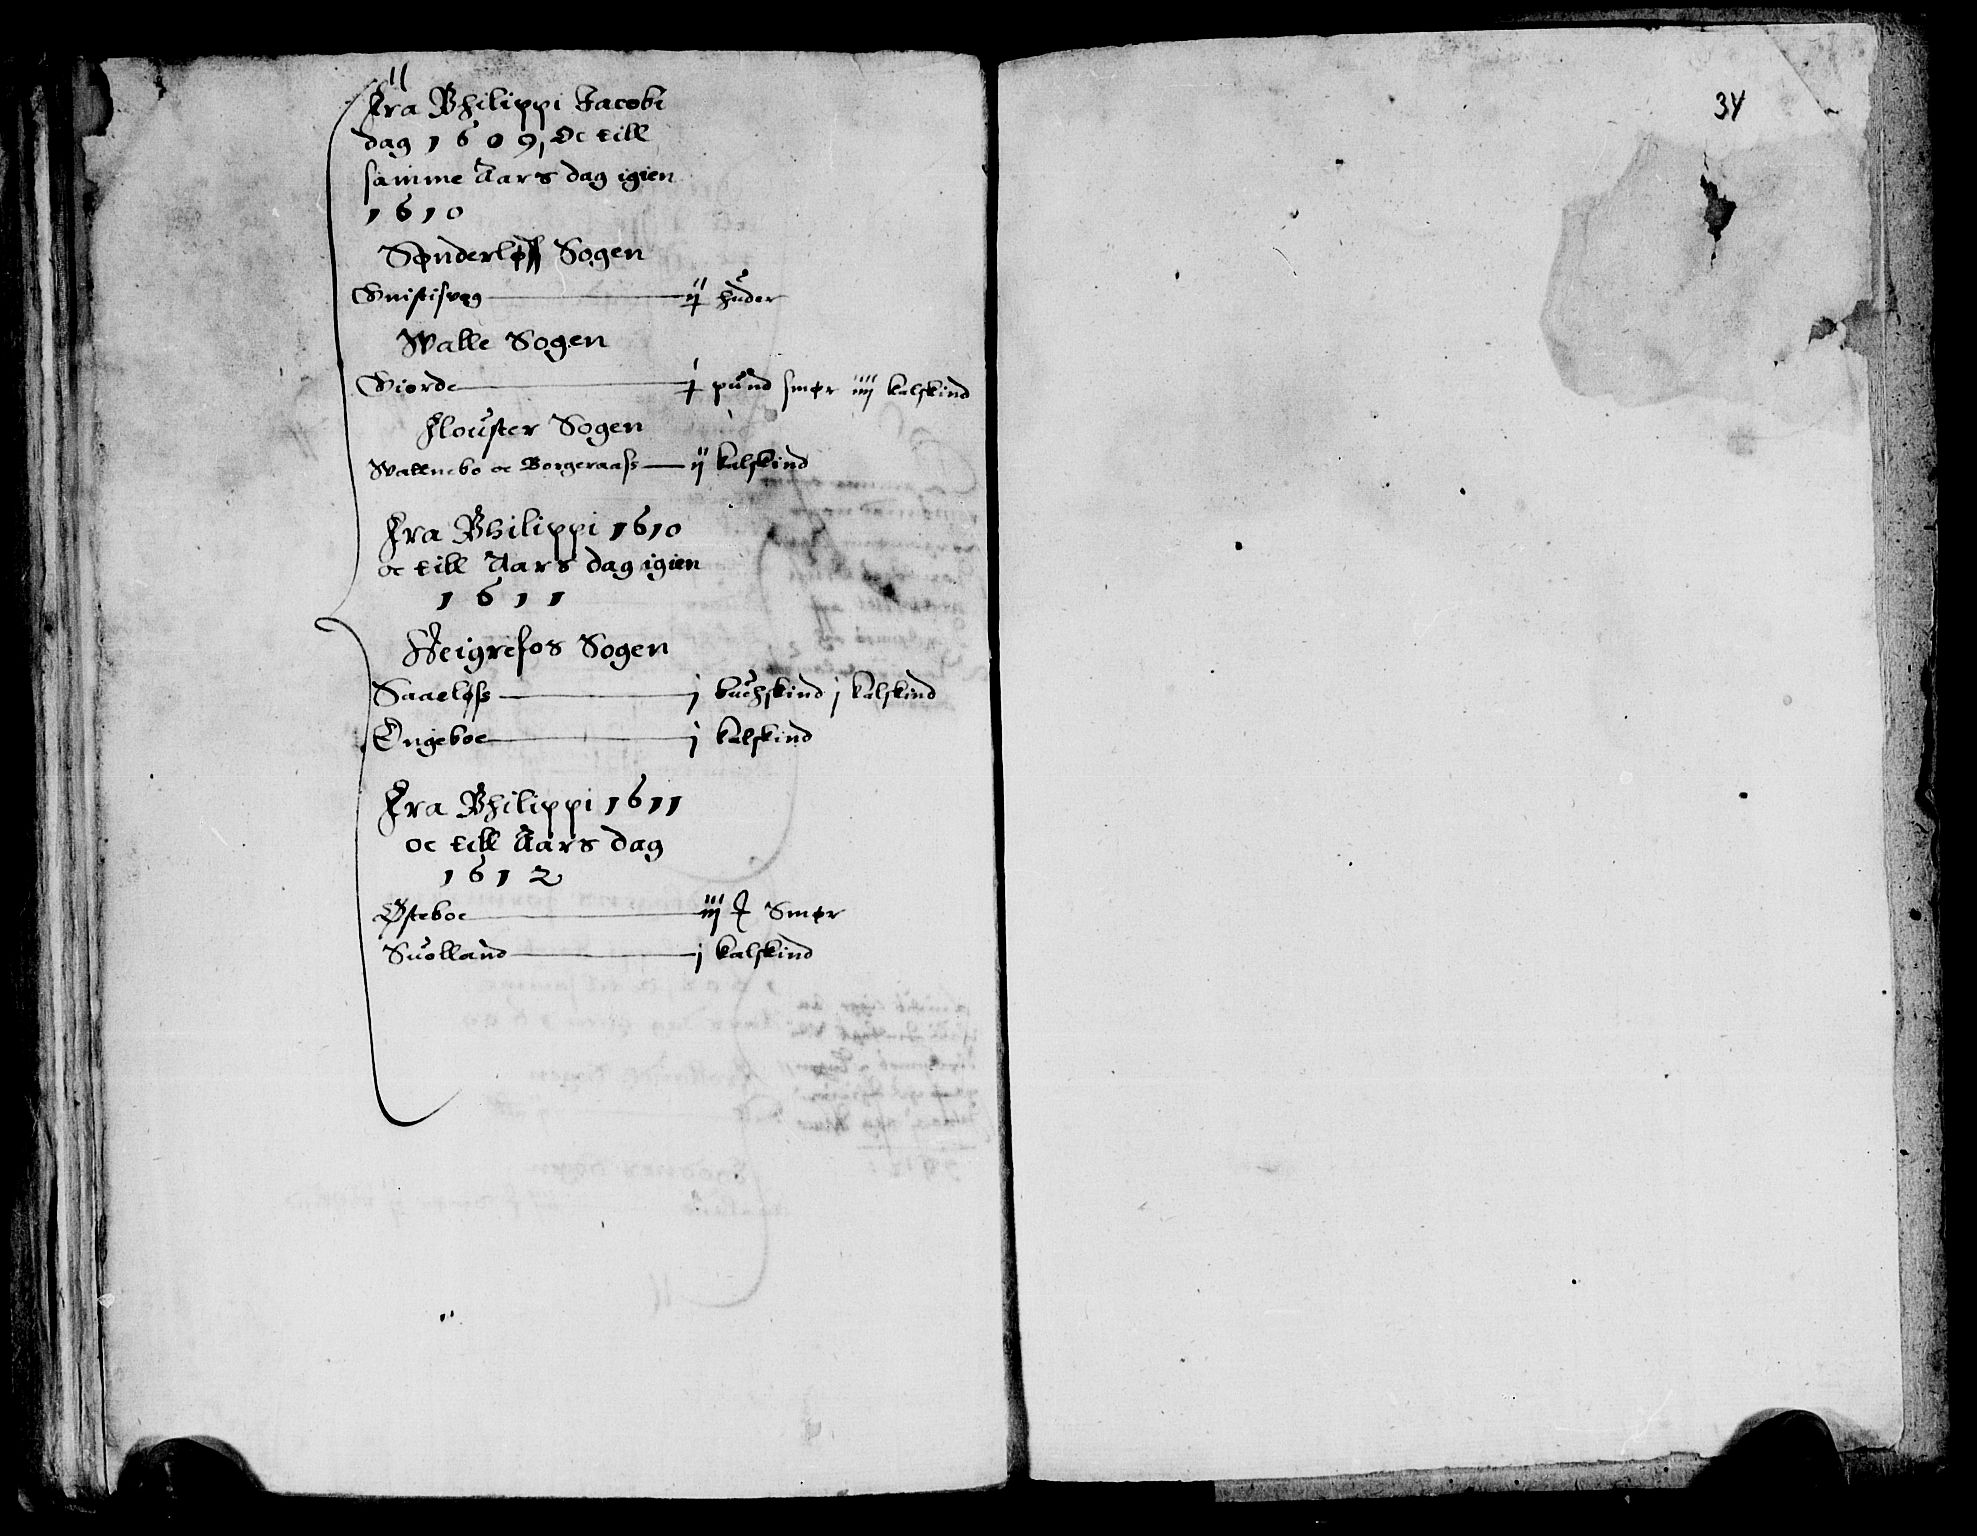 Fra Philippi Jacobi
dag 1609, Oc till
samme Aars dag igien
1610
Sønderløss Sogen
ij huder
Walle Sogen
Giorde j pund smør iiij kalskind
Flouster Sogen
Wallnebo oc Borgeraass ij kalskind
Fra Philippi 1610
oc till Aars dag igien
1611
Heigrefos Sogen
Saaeløss j buchskind j kalskind
Engeboe j kalskind
Fra Philippi 1611
oc till Aars dag
1612
Østeboe iij Smør
Suolland j kalskind
34